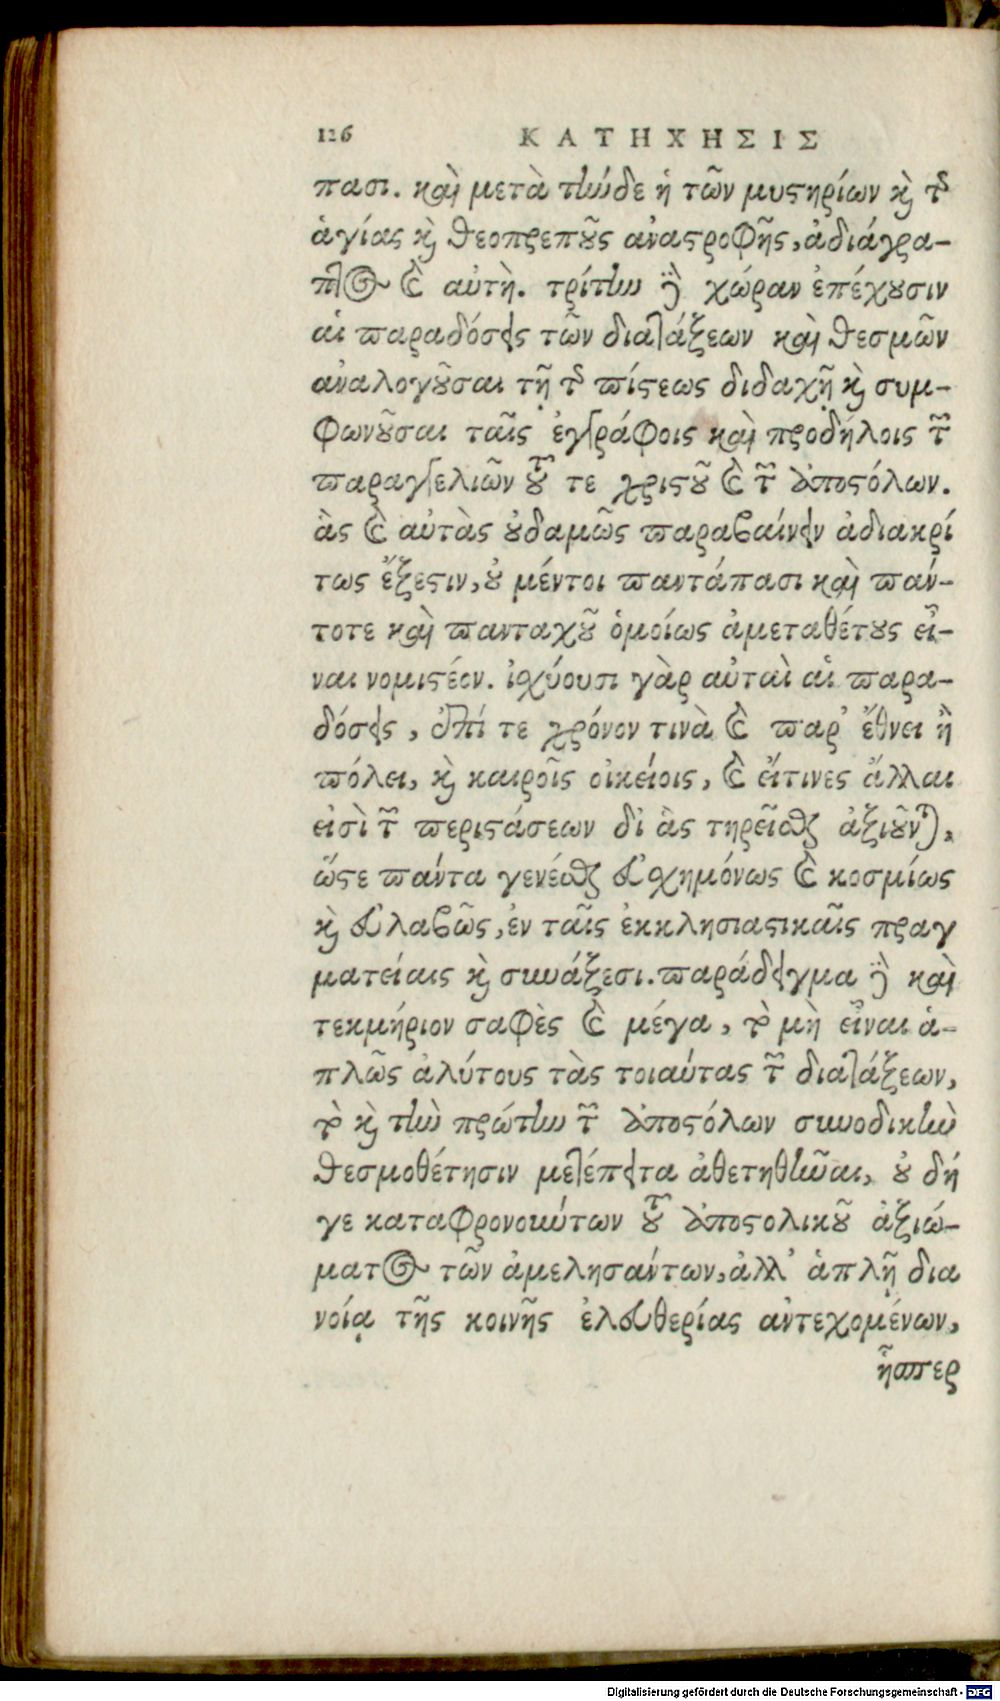 126 ΚΑΤΗΧΗΣΙΣ
πασι. καὶ μετὰ τήνδε ἡ τῶν μυστηρίων καὶ τῆς
ἁγίας καὶ θεοπρεποῦς ἀναστροφῆς, ἀδιάγρα-
πτος καὶ αὐτή. τρίτην δὲ χώραν ἐπέχουσιν
αἱ παραδόσεις τῶν διατάξεων καὶ θεσμῶν
ἀναλογοῦσαι τῇ τῆς πίστεως διδαχῇ καὶ συμ-
φωνοῦσαι ταῖς ἐγγράφοις καὶ προδήλοις τῶν
παραγγελιῶν τοῦ τε χριστοῦ καὶ τῶν ἀποστόλων.
ἃς καὶ αὐτὰς οὐδαμῶς παραβαίνειν ἀδιακρί
τως ἔξεστιν, οὐ μέντοι παντάπασι καὶ πάν-
τοτε καὶ πανταχοῦ ὁμοίως ἀμεταθέτους εἶ-
ναι νομιστέον. ἰσχύουσι γὰρ αὐταὶ αἱ παρα-
δόσεις, ἐπί τε χρόνον τινὰ καὶ παρ' ἔθνει ἢ
πόλει, καὶ καιροῖς οἰκείοις, καὶ εἴτινες ἄλλαι
εἰσὶ τῶν περιστάσεων δι ἃς τηρεῖσθαι ἀξιοῦνται,
ὥστε πάντα γενέσθαι εὐσχημόνως καὶ κοσμίως
καὶ εὐλαβῶς, ἐν ταῖς ἐκκλησιαστικαῖς πραγ
ματείαις καὶ συνάξεσι. παράδειγμα δὲ καὶ
τεκμήριον σαφὲς καὶ μέγα, τὸ μὴ εἶναι ἁ-
πλῶς ἀλύτους τὰς τοιαύτας τῶν διατάξεων,
τὸ καὶ τὴν πρώτην τῶν ἀποστόλων συνοδικὴν
θεσμοθέτησιν μετέπειτα ἀθετηθῆναι, οὐ δή
γε καταφρονούντων τοῦ ἀποστολικοῦ ἀξιώ-
ματος τῶν ἀμελησάντων, ἀλλ' ἁπλῇ δια
νοίᾳ τῆς κοινῆς ἐλευθερίας ἀντεχομένων,
ἧσπερ
Digitalisierung gefördert durch die Deutsche Forschungsgemeinschaft - DFG